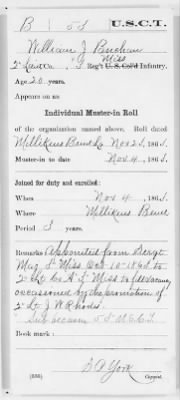 B 58 U.S.C.T.
William J Buchan
2 Lieut., 9 Miss Reg't U.S. Col'd Infantry.
Age 20 years.
Appears on an
Individual Muster-in Roll
of the organization named above. Roll dated
Millikens Bend La Nov 25, 1863.
Muster-in to date Nov 4, 1863.
Joined for duty and enrolled:
When Nov 4, 1863.
Where Millikens Bend
Period 3 years.
Remarks Appointed from Sergt
Maj Miss Oct 10 1863 to
2d Lt Co Miss vacancy
occasioned by the promotion of
2d Lt J W Rhodes
Subsequently 58 U.S.C.T.
Book mark:
(636) Copyist.